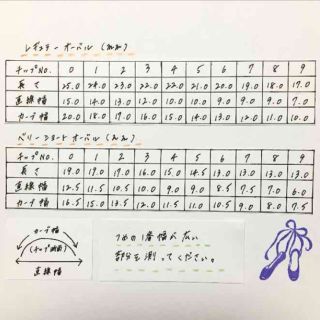 レギュラーオーバル (mm)
チップNO. 0 1 2 3 4 5 6 7 8 9
長さ 25.0 24.0 23.0 22.0 22.0 21.0 20.0 19.0 18.0 17.0
直線幅 15.0 14.0 13.0 12.0 10.0 10.0 9.0 9.0 9.0 7.0
カーブ幅 20.0 18.0 17.0 16.0 15.0 14.0 13.0 12.0 11.0 10.0
ベリーショートオーバル (mm)
チップNO. 0 1 2 3 4 5 6 7 8 9
長さ 19.0 19.0 17.0 16.0 15.0 14.5 13.0 13.0 13.0 12.0
直線幅 12.5 11.5 10.5 10.0 9.0 9.0 8.5 7.5 7.0 6.0
カーブ幅 16.5 15.0 13.5 12.5 11.5 10.5 10.5 9.0 8.0 7.5
カーブ幅
(チップ断面)
直線幅
つめの1番幅が広い
部分を測ってください。